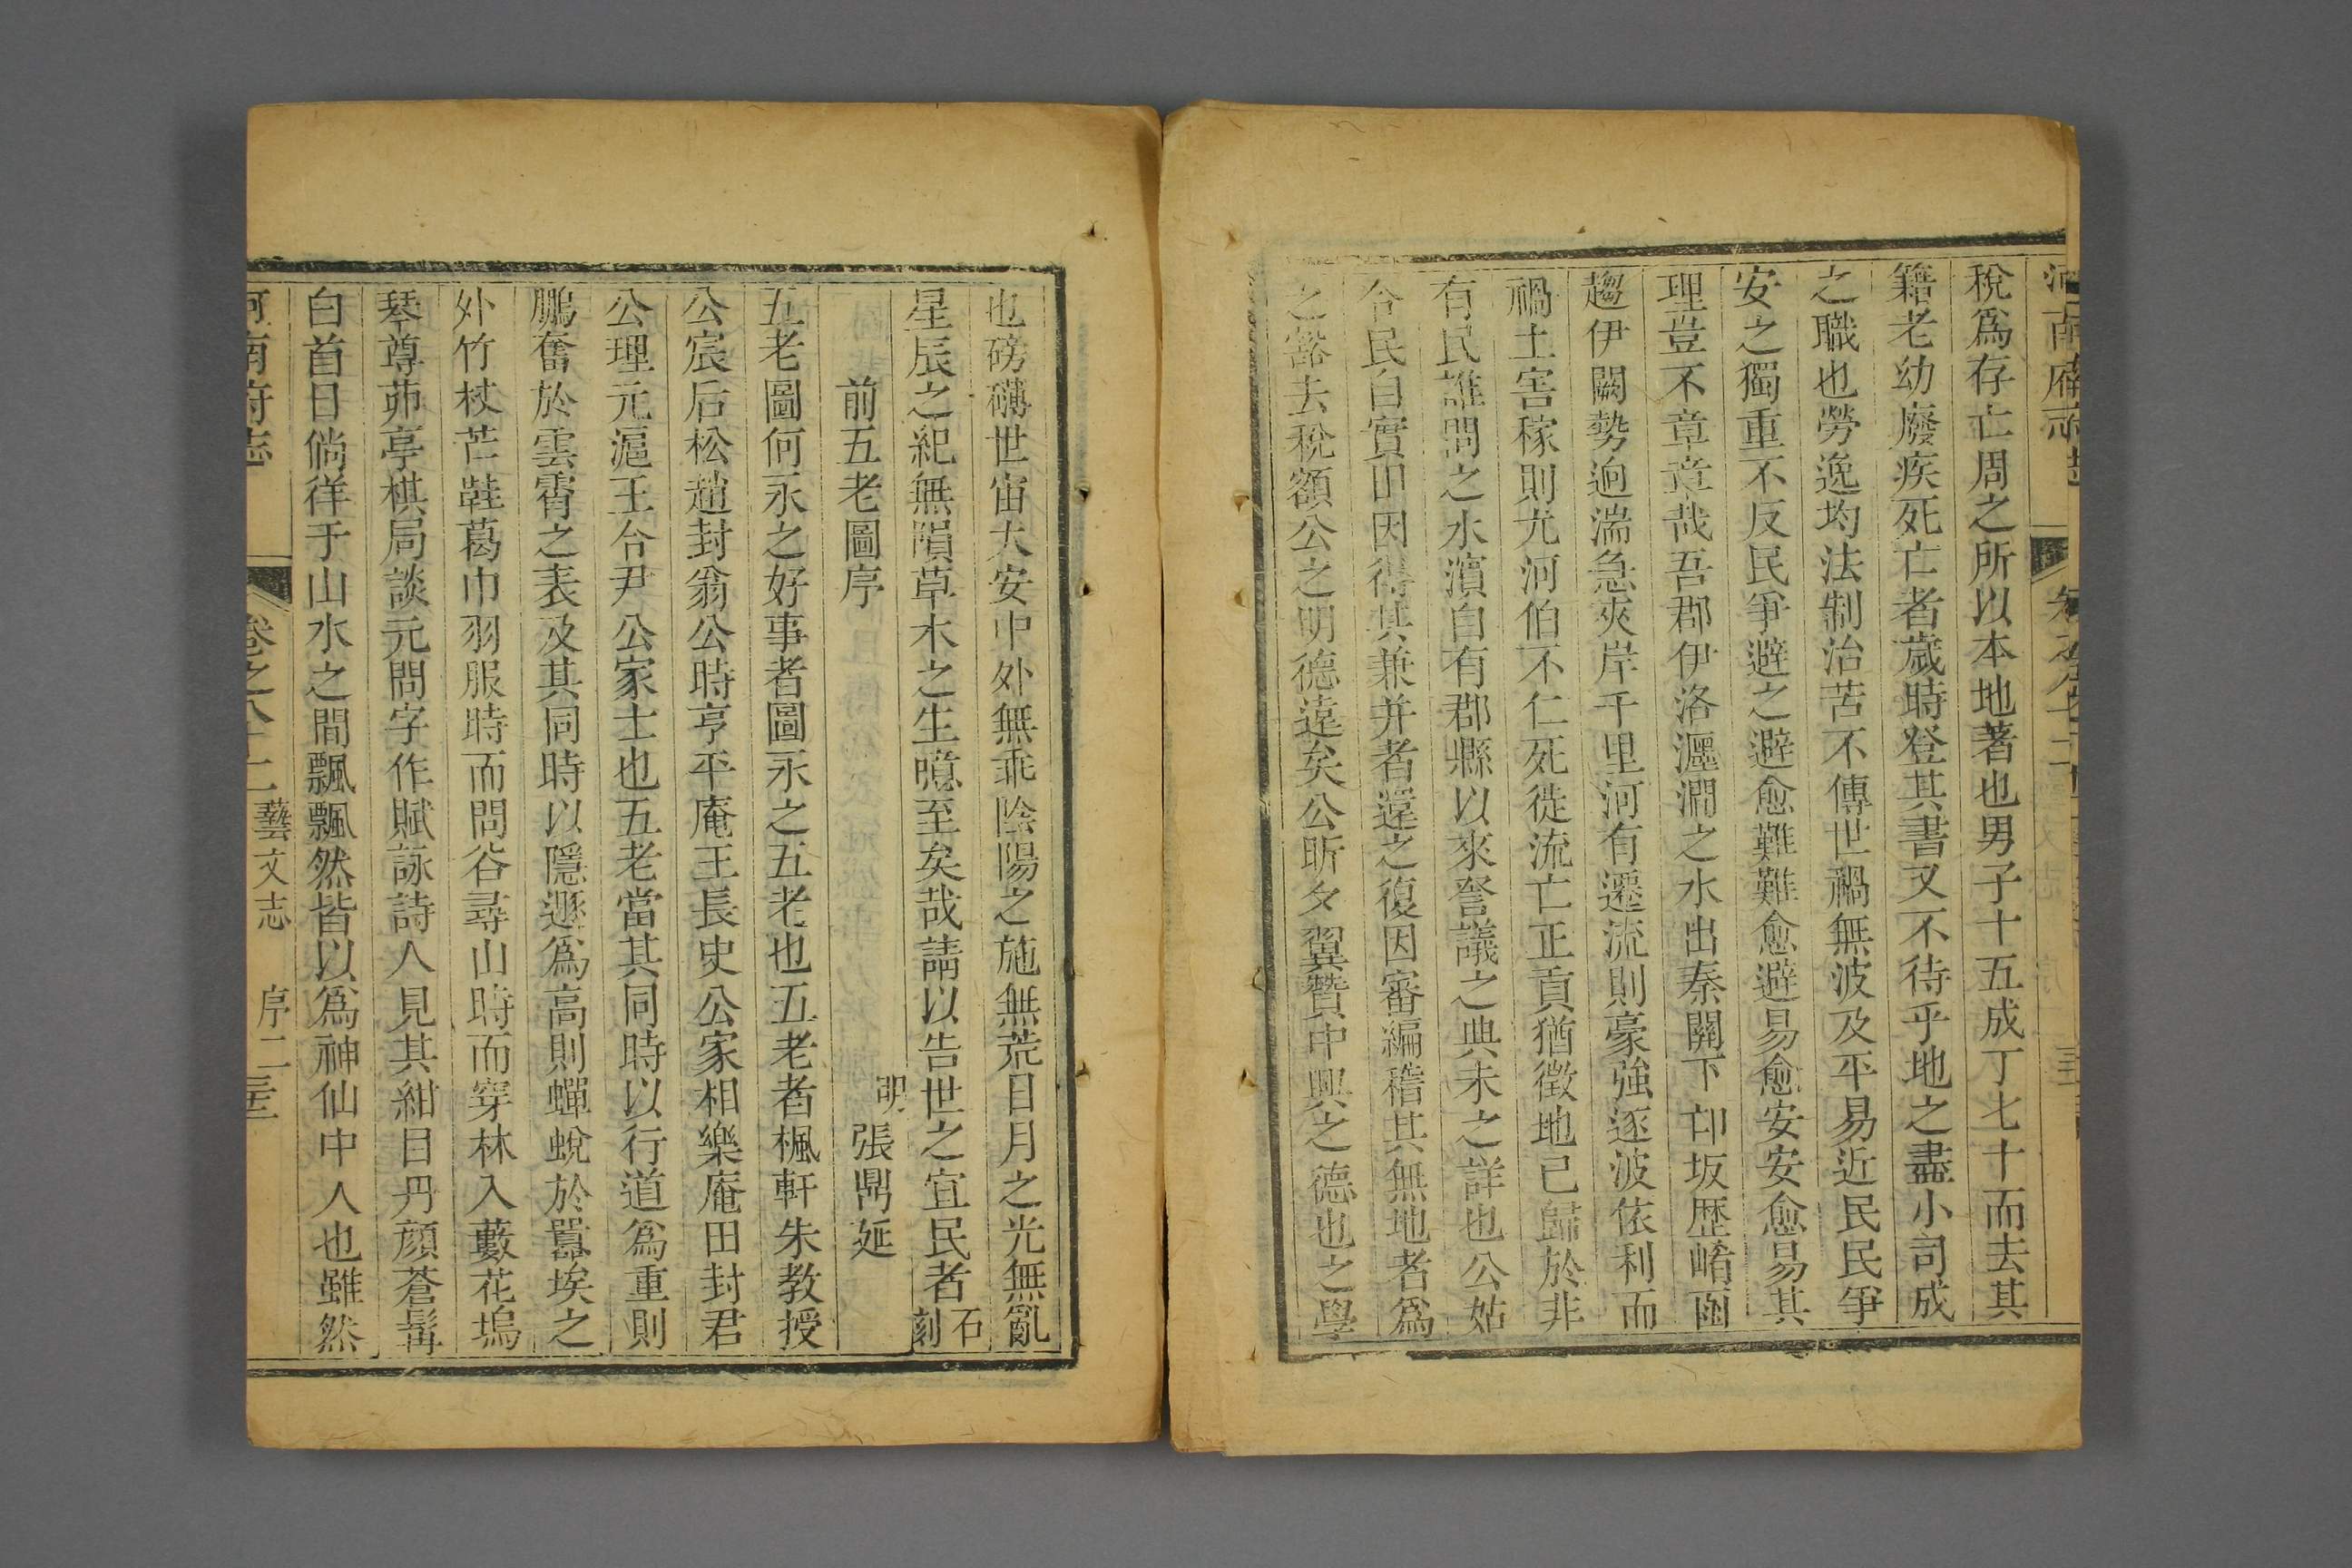 稅爲存亡周之所以本地著也男子十五成丁七十而去其
籍老幼廢疾死亡者歲時登其書又不待乎地之盡小司成
之職也勞逸均法制治苦不傳世禍無波及平易近民民爭
安之獨重不反民爭避之避愈難難愈避易愈安安愈易其
理豈不章章哉吾郡伊洛瀍澗之水出秦關下卭坂歷崤函
趨伊闕勢逈湍急夾岸千里河有遷流則豪強逐波依利而
禍土害稼則尤河伯不仁死徙流亡正貢猶徵地已歸於非
有民誰問之水濱自有郡縣以來詧議之典未之詳也公姑
令民自實田因得其兼并者違之復因審編稽其無地者爲
之豁去稅額公之明德遠矣公昕夕翼贊中興之德也之學
也磅礴世宙大安中外無乖陰陽之施無荒日月之光無亂
星辰之紀無隕草木之生噫至矣哉請以告世之宜民者石刻
前五老圖序
明張鼎延
五老圖何永之好事者圖永之五老也五老者楓軒朱教授
公宸后松趙封翁公時亨平庵王長史公家相樂庵田封君
公理元滬王合尹公家士也五老當其同時以行道爲重則
鵬奮於雲霄之表及其同時以隱遯爲高則蟬蛻於囂埃之
外竹杖芒鞋葛巾羽服時而問谷尋山時而穿林入藪花塢
琴尊茆亭棋局談元問字作賦詠詩人見其紺目丹顏蒼髯
白首日倘徉于山水之間飄飄然皆以爲神仙中人也雖然
河南府志 卷之八十二藝文志 序二